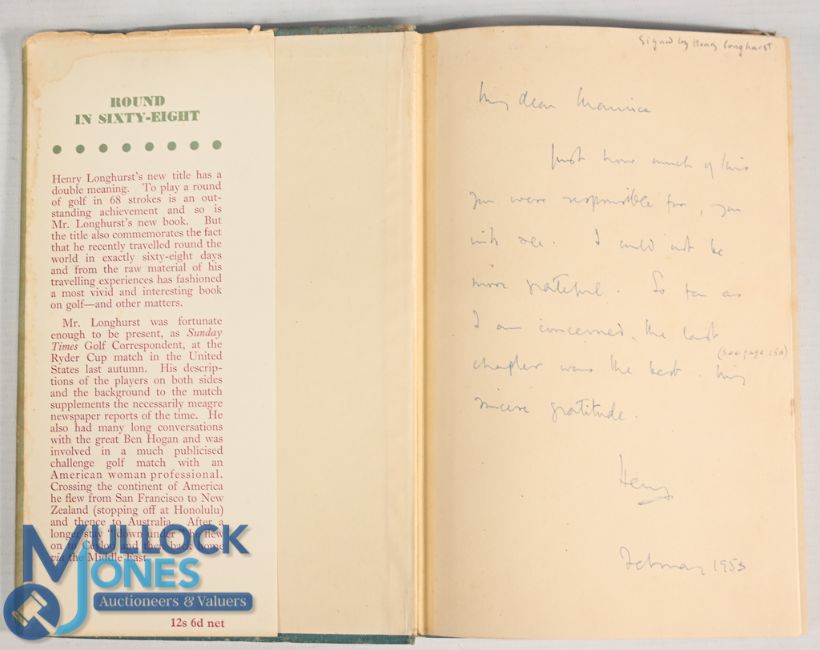 ROUND
IN SIXTY-EIGHT
Henry Longhurst's new title has a
double meaning. To play a round
of golf in 68 strokes is an out-
standing achievement and so is
Mr. Longhurst's new book. But
the title also commemorates the fact
that he recently travelled round the
world in exactly sixty-eight days
and from the raw material of his
travelling experiences has fashioned
a most vivid and interesting book
on golf—and other matters.
Mr. Longhurst was fortunate
enough to be present, as Sunday
Times Golf Correspondent, at the
Ryder Cup match in the United
States last autumn. His descrip-
tions of the players on both sides
and the background to the match
supplements the necessarily meagre
newspaper reports of the time. He
also had many long conversations
with the great Ben Hogan and was
involved in a much publicised
challenge golf match with an
American woman professional.
Crossing the continent of America
he flew from San Francisco to New
Zealand (stopping off at Honolulu)
and thence to Australia. After a
longer stay "down under" he flew
on to Ceylon and then back home
via the Middle East.
12s 6d net
MULLOCK
JONES
Auctioneers & Valuers
Signed by Henry Longhurst.
My dear Maurice
Just how much of this
you were responsible for, you
will see. I could not be
more grateful. So far as
I am concerned, the last
(see page 150)
chapter was the best. My
sincere gratitude.
Henry
February 1953